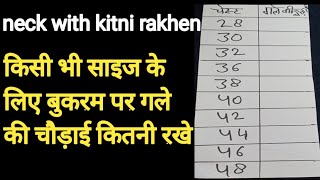 neck with kitni rakhen
किसी भी साइज के
लिए बुकरम पर गले
की चौड़ाई कितनी रखे
चेस्ट
28
30
32
36
38
40
42
44
46
48